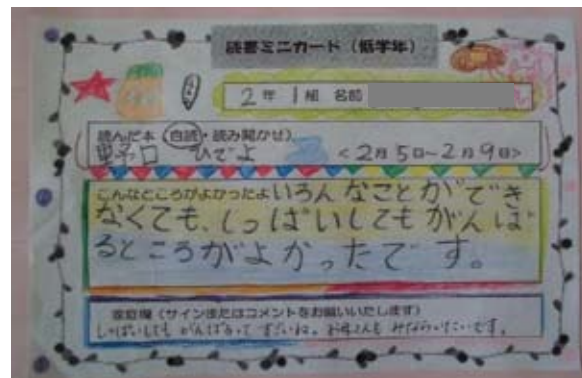 読書ミニカード（低学年）
2年 1組 名前
読んだ本（自読・読み聞かせ）
野口 ひでよ <2月5日~2月9日>
こんなところがよかったよ いろんなことができ
なくても、しっぱいしてもがんば
るところがよかったです。
家庭欄（サインまたはコメントをお願いいたします）
しっぱいしても がんばるって すごいね。お母さんも みならいたいです。